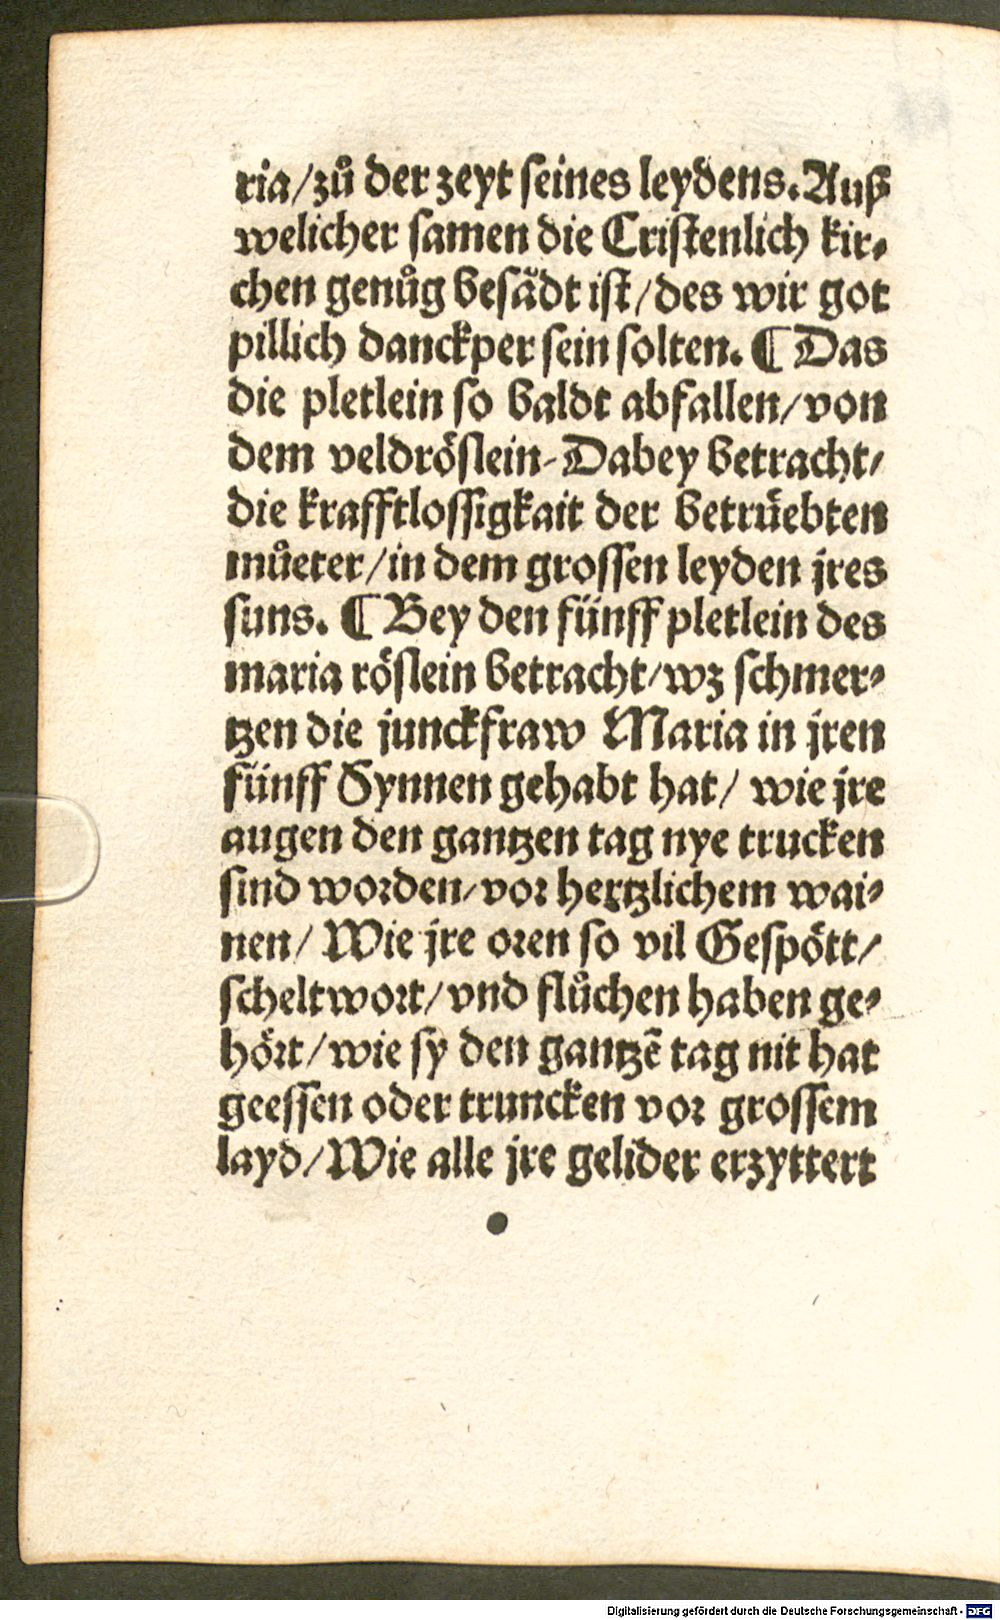 ria/zů der zeyt seines leydens. Auß
welicher samen die Cristenlich kir⸗
chen genůg besådt ist/des wir got
pillich danckper sein solten. ¶ Das
die pletlein so baldt abfallen/von
dem veldrößlein-Dabey betracht/
die krafftlossigkait der betrüebten
můeter/in dem grossen leyden jres
suns. ¶ Bey den fünff pletlein des
maria röslein betracht/wz schmer⸗
tzen die junckfraw Maria in jren
fünff Synnen gehabt hat/ wie jre
augen den gantzen tag nye trucken
sind worden/vor hertzlichem wai⸗
nen/ Wie jre oren so vil Gespött/
scheltwort/vnd flůchen haben ge⸗
hört/wie sy den gantzē tag nit hat
geessen oder truncken vor grossem
layd/Wie alle jre gelider erzyttert
Digitalisierung gefördert durch die Deutsche Forschungsgemeinschaft - DFG